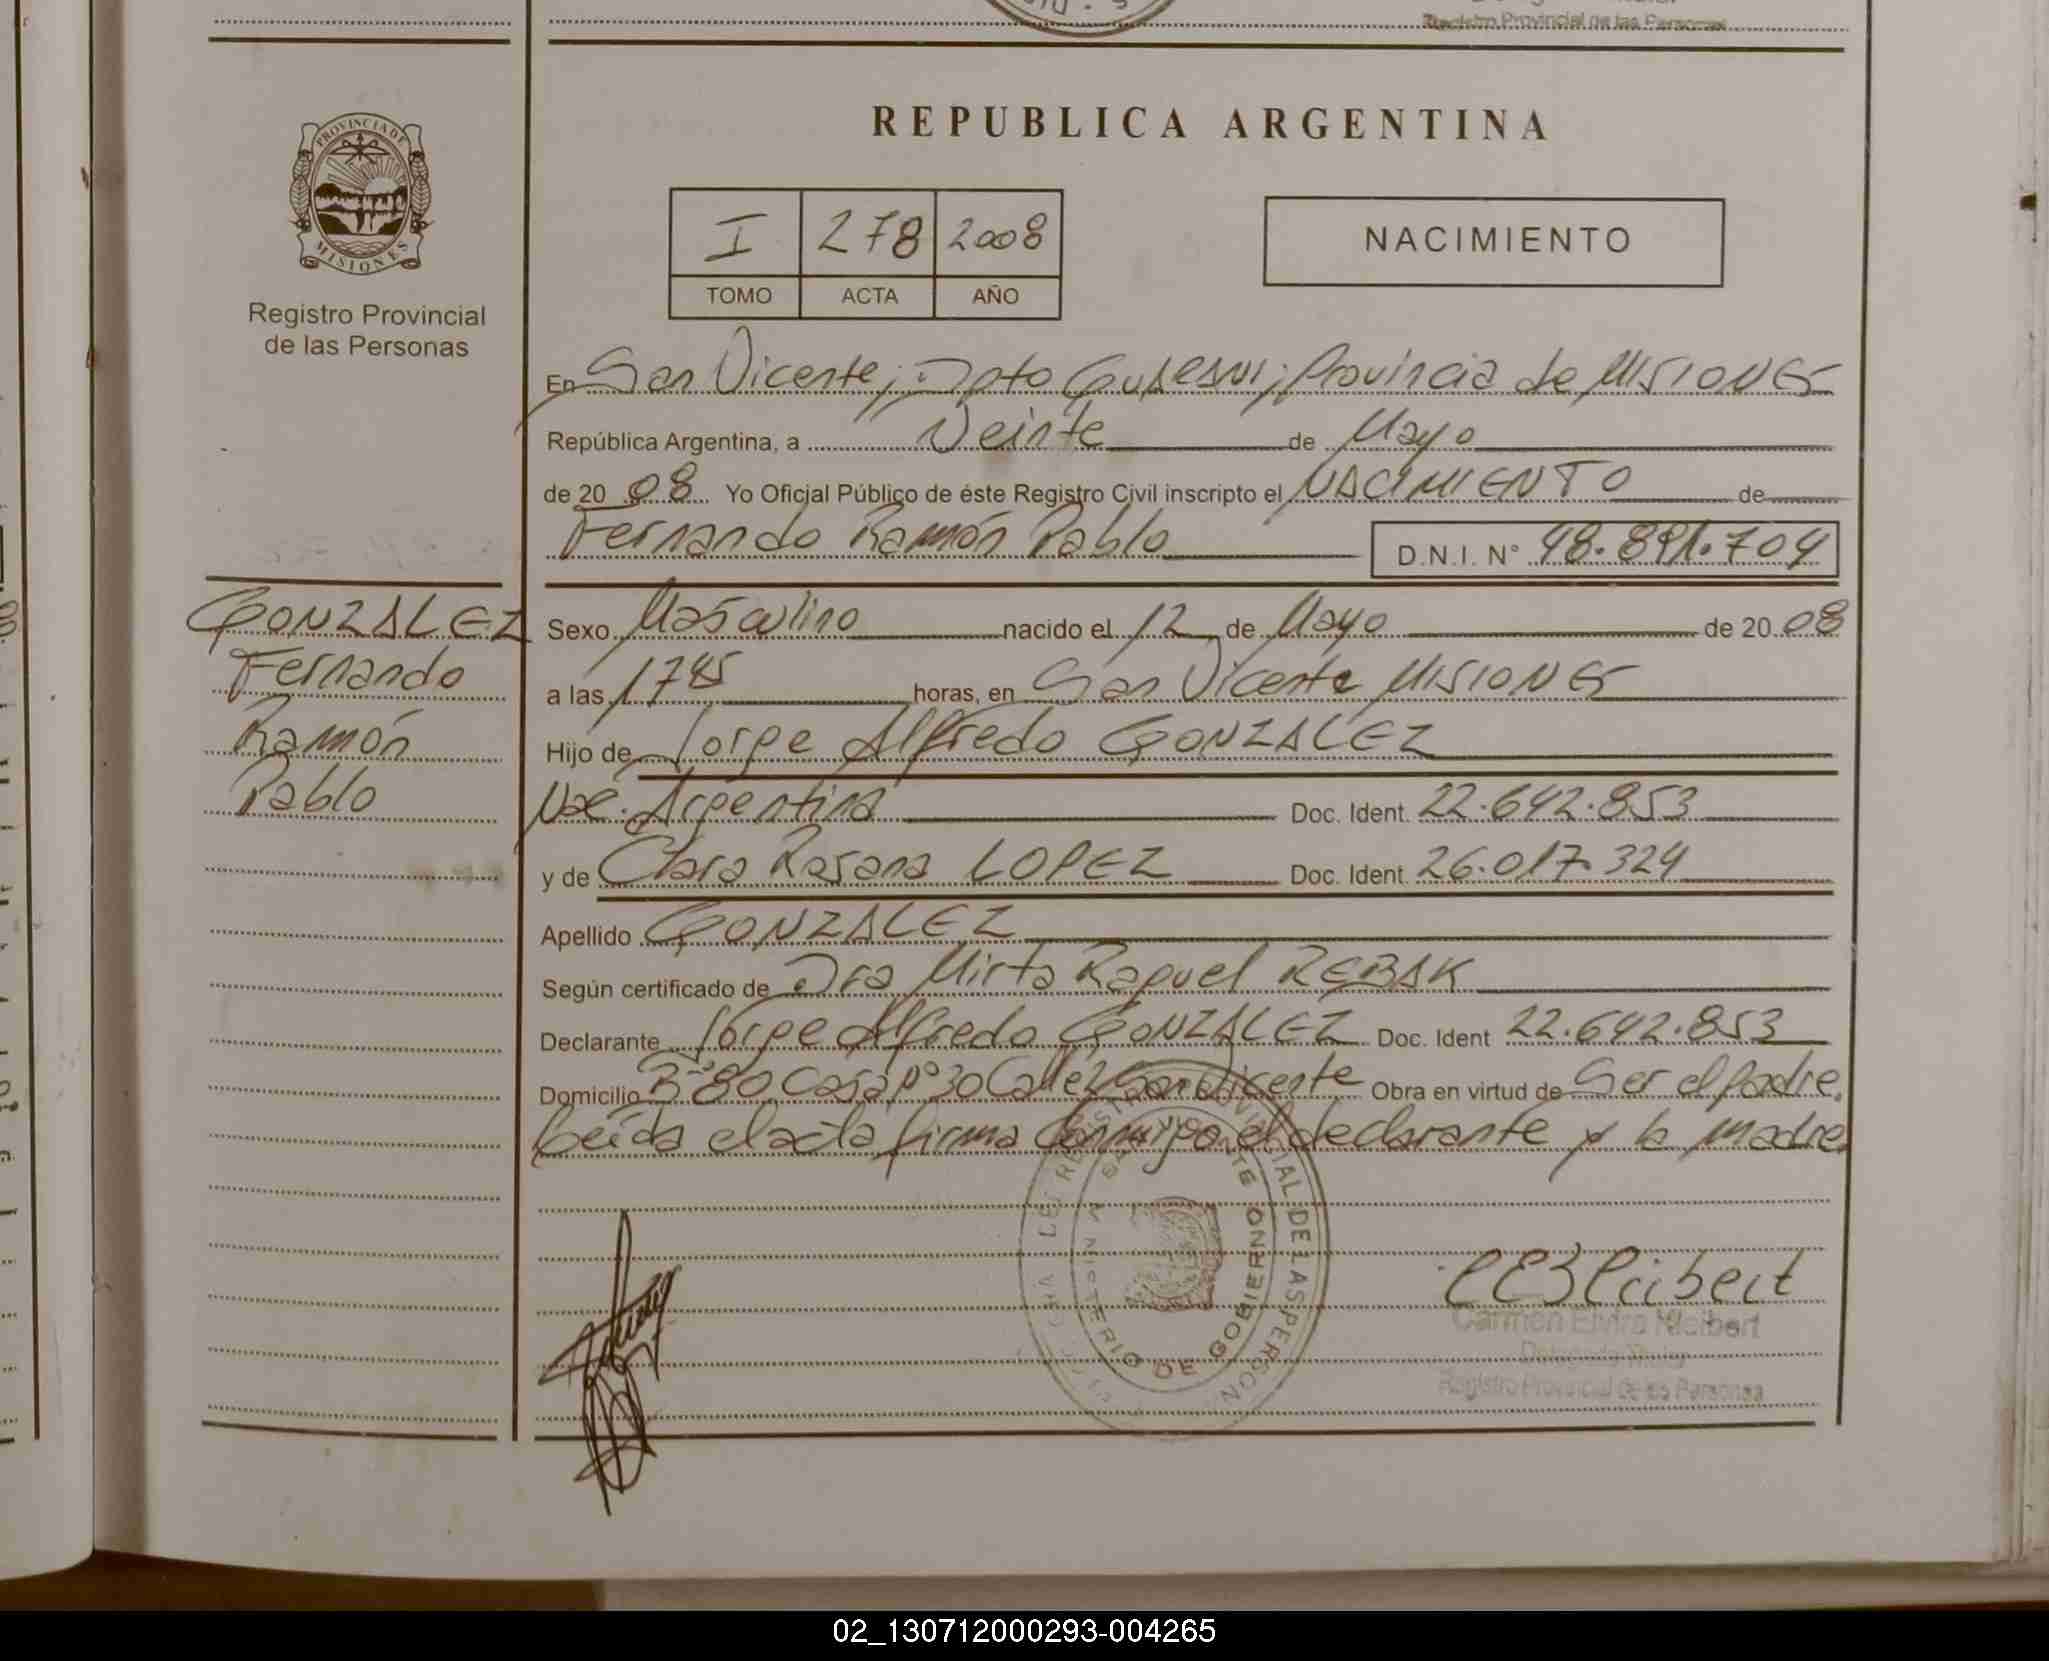 Registro Provincial de las Personas
REPUBLICA ARGENTINA
PROVINCIA DE
MISIONES
Registro Provincial
de las Personas
I 278 2008
TOMO ACTA AÑO
NACIMIENTO
En San Vicente; Dpto Guaraní; Provincia de MISIONES
República Argentina, a Veinte de Mayo
de 20 08 Yo Oficial Público de éste Registro Civil inscripto el NACIMIENTO de
Fernando Ramón Pablo D.N.I. N° 48.891.704
GONZALEZ
Fernando
Ramón
Pablo
Sexo Masculino nacido el 12 de Mayo de 20 08
a las 1745 horas, en San Vicente MISIONES
Hijo de Jorge Alfredo GONZALEZ
Nac. Argentina Doc. Ident. 22.642.853
y de Clara Rosana LOPEZ Doc. Ident. 26.017.324
Apellido GONZALEZ
Según certificado de Dra Mirta Raquel REBAK
Declarante Jorge Alfredo GONZALEZ Doc. Ident 22.642.853
Domicilio B° 80 Casa n° 30 Calle 2 San Vicente Obra en virtud de Ser el padre.
Leída el acta firma Conmigo el declarante y la madre
MINISTERIO DE GOBIERNO
PROVINCIAL DE LAS PERSONAS
Carmen Elvira Kleibert
Delegada Titular
Registro Provincial de las Personas
02_130712000293-004265